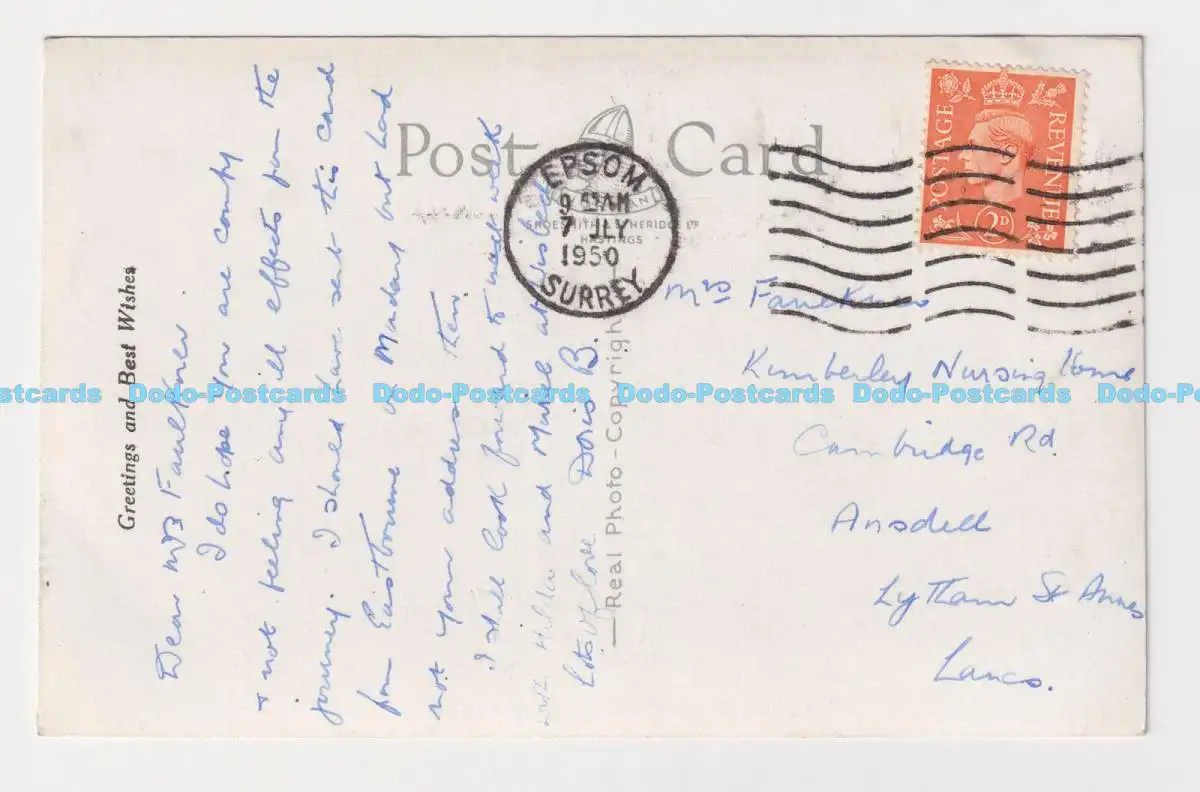 Post Card
SHOESMITH & ETHERIDGE LTD
HASTINGS
EPSOM
9 AM
7 JLY
1950
SURREY
POSTAGE
REVENUE
2D
Greetings and Best Wishes
Dear Mrs Faulkner
I do hope you are comfy
& not feeling any ill effects from the
journey. I should have sent this card
from Eastbourne or Madard but had
not your address then
I shall look forward to next week
with Hilda and Muriel
Lots of love Doris B.
Real Photo-Copyright
Mrs Faulkner
Kimberley Nursing Home
Cambridge Rd.
Ansdell
Lytham St Annes
Lancs.
Dodo-Postcards Dodo-Postcards Dodo-Postcards Dodo-Postcards Dodo-Postcards Dodo-Postcards